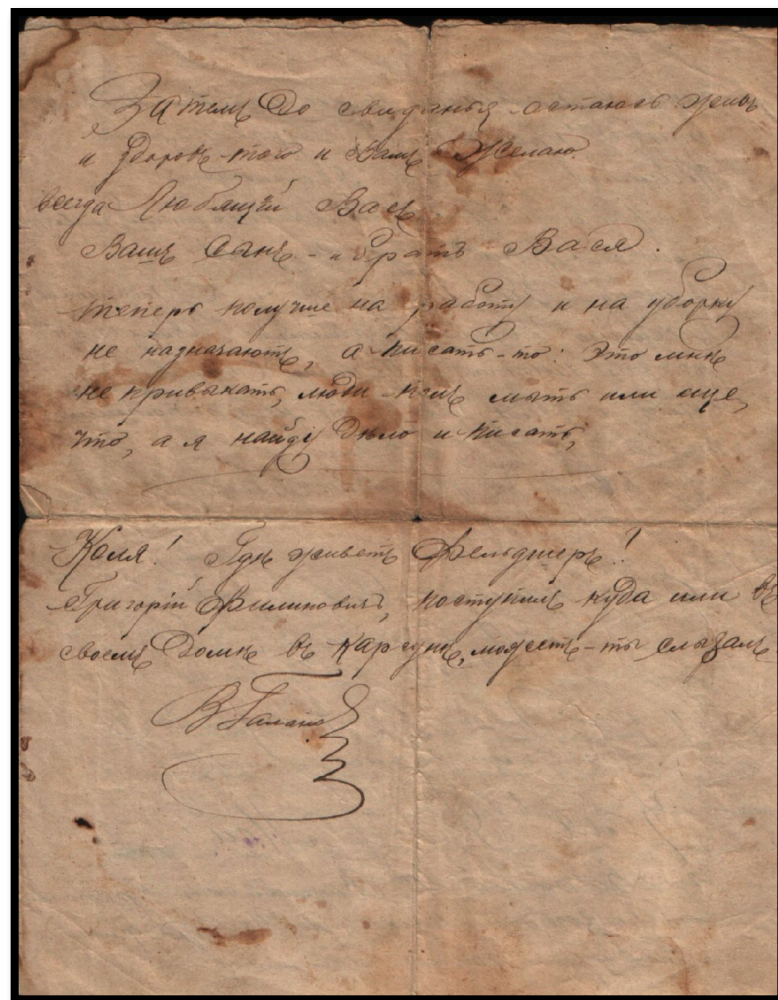 Затемъ до свиданья остаюсь живъ
и здоровъ того и Вамъ Желаю.
всегда Любящій Васъ
Вашъ Сынъ - и братъ Вася.
теперь получше на работу и на уборку
не назначаютъ, а писать-то: это мнѣ
не привыкать, люди полъ мыть или еще,
что, а я найду дѣло и писать,
Коля! Гдѣ живетъ Фельдшеръ!
Григорій Филиповичъ, поступилъ куда или въ
своемъ Домѣ въ Карсунѣ, можетъ-ты слыхалъ